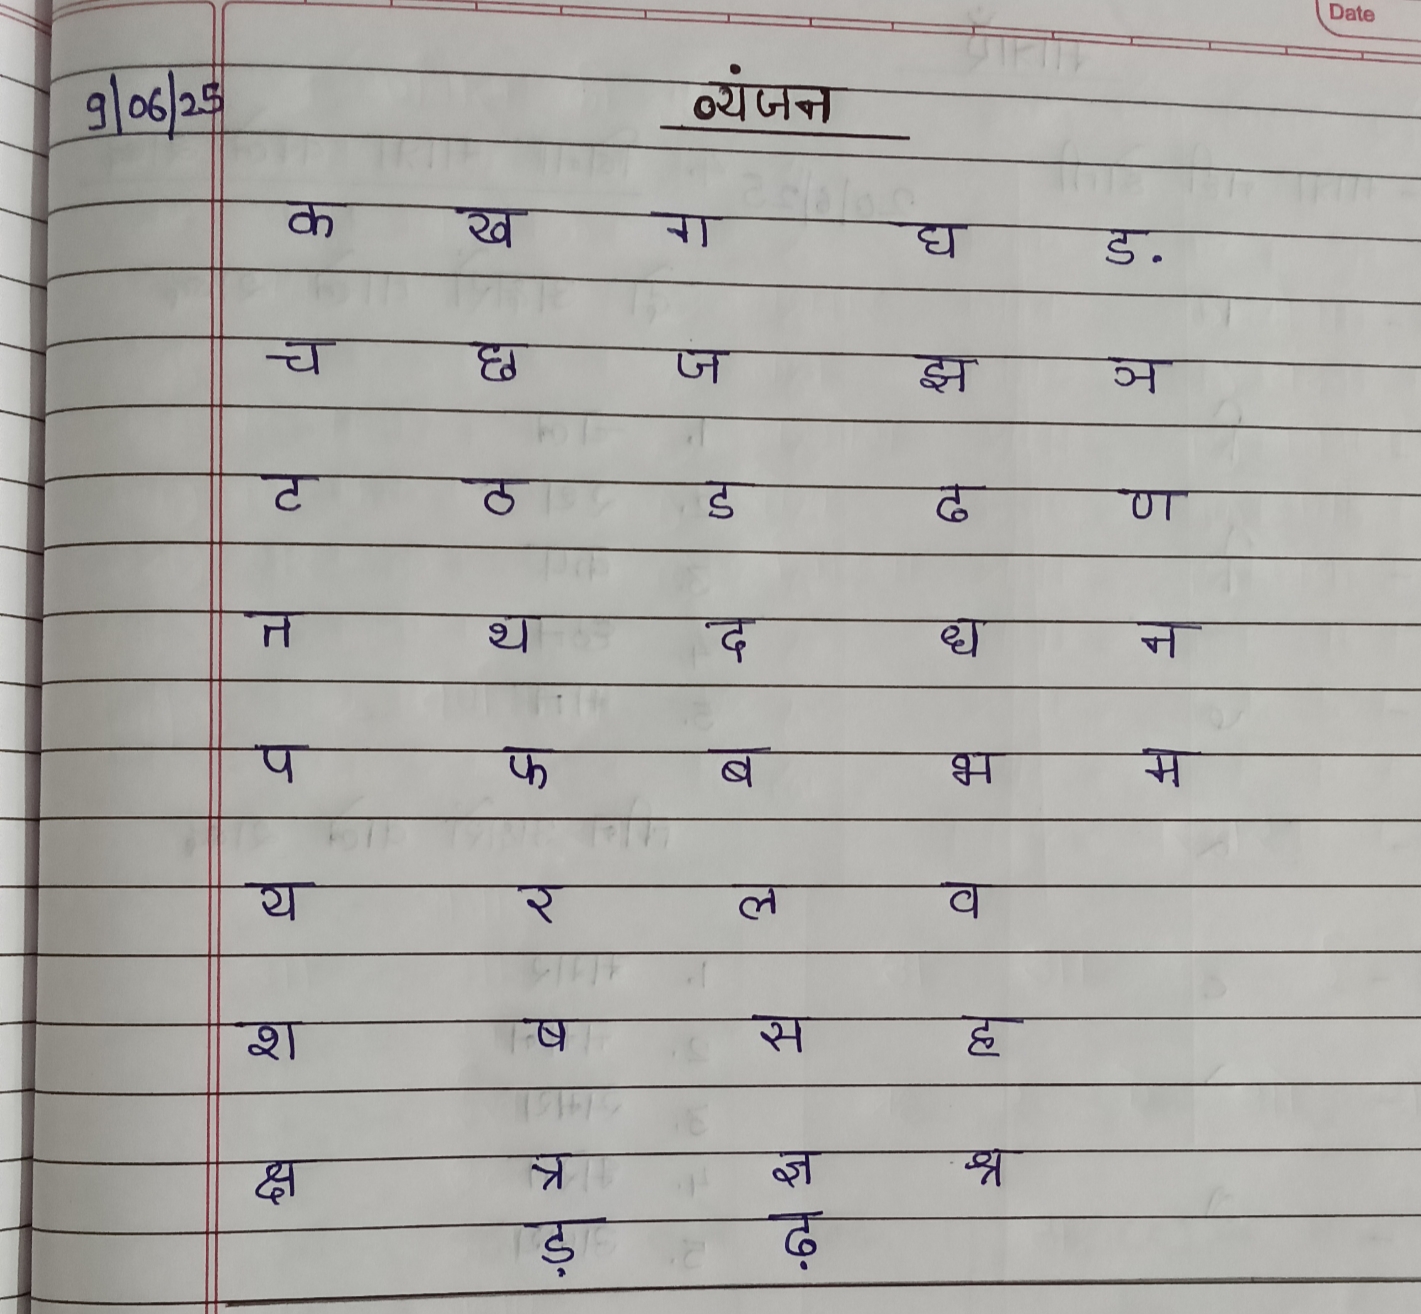 Date
9/06/25 व्यंजन
क ख ग घ ङ
च छ ज झ ञ
ट ठ ड ढ ण
त थ द ध न
प फ ब भ म
य र ल व
श ष स ह
क्ष त्र ज्ञ श्र
ड़ ढ़